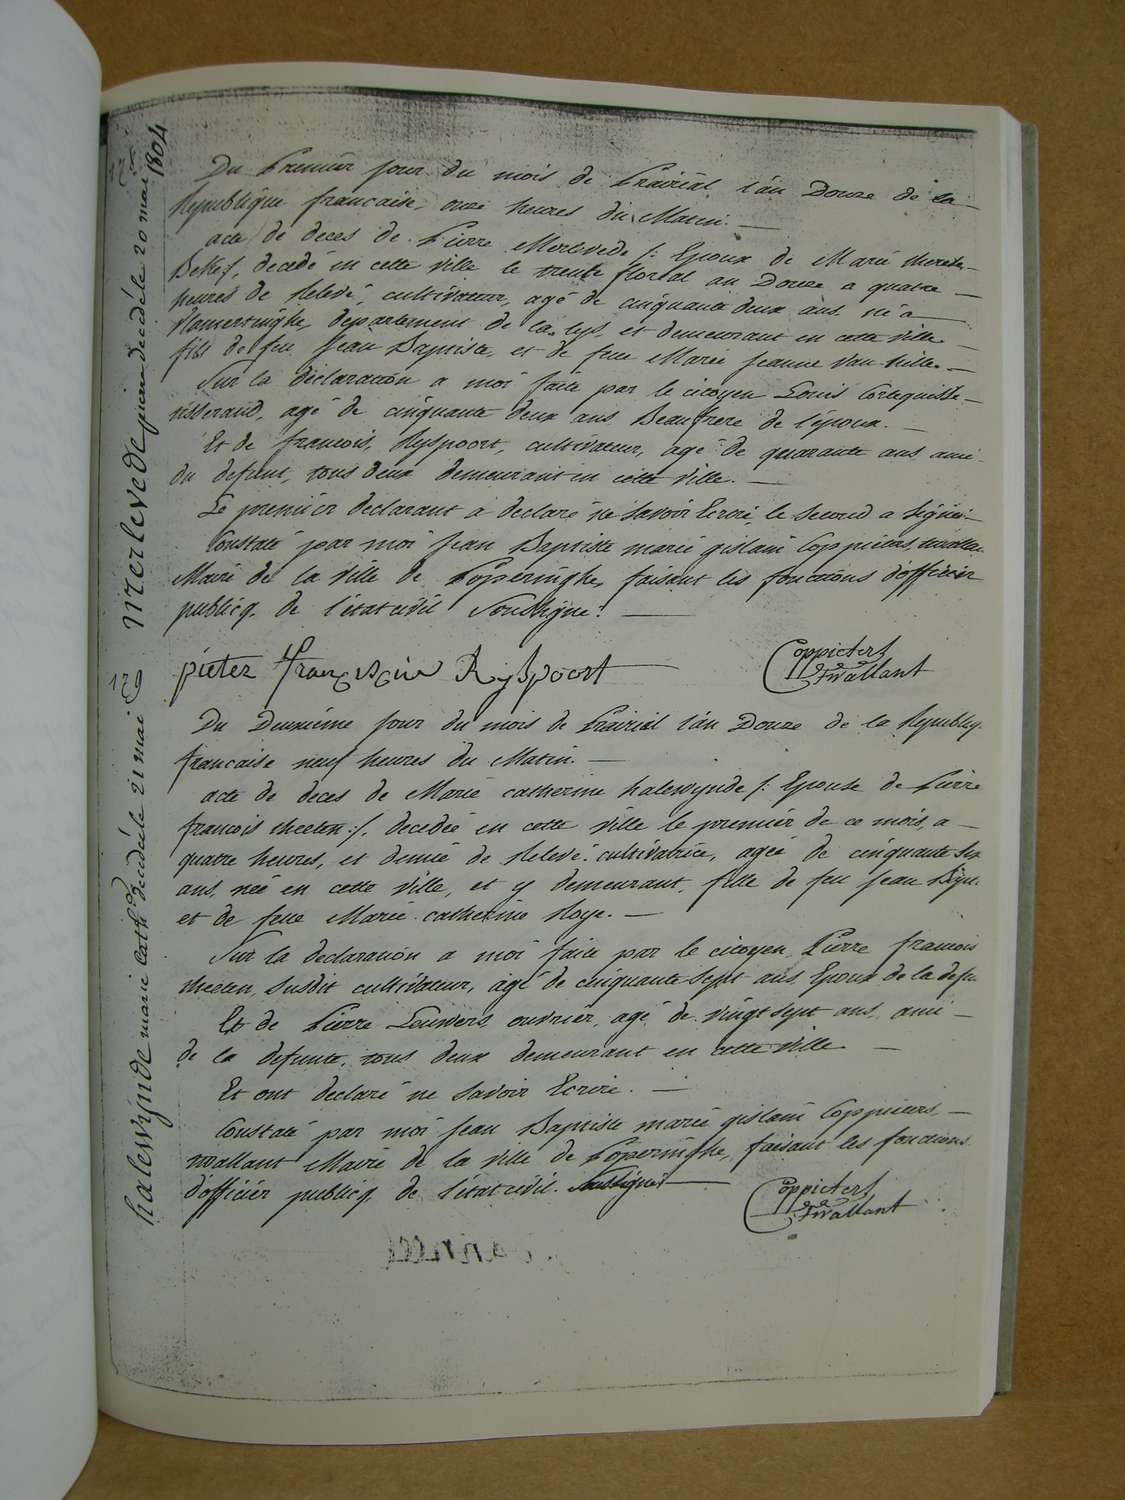 Du Premiér jour du mois de Prairial l'an Douze de la
Republique francaise, onze heures du Matin.
acte de deces de Pierre Merlevede /: Epoux de Marie therese
decedé en cette ville le trente floréal an Douze a quatre
heures de Relevé, cultivateur, agé de cinquante deux ans né a
Vlamertinghe, departement de la Lys, et demeurant en cette ville
fils de feu Jean Baptiste, et de feue Marie Jeanne Van hille.
Sur la déclaration a moi faite par le citoyen Louis
tisserand, agé de cinquante deux ans Beaufrere de l'époux.
Et de francois Ryspoort, cultivateur, agé de quarante ans ami
du defunt, tous deux demeurant en cette ville.
Le premiér declarant a declaré ne savoir Ecrire, le second a signé
Constaté par moi Jean Baptiste marie gislain Coppieters
Maire de la ville de Poperinghe, faisant les fonctions d'officiér
publicq de l'état civil Soussigné.
pieter franciscus Ryspoort
Coppieters
Twallant
Du Deuxiéme jour du mois de Prairial l'an Douze de la Republiq.
francaise neuf heures du Matin.
acte de deces de Marie catherine halewynde /: Epouse de Pierre
francois theeten :/, decedée en cette ville le premiér de ce mois, a
quatre heures, et demie de Relevé. cultivatrice, agée de cinquante six
ans, née en cette ville, et y demeurant, fille de feu Jean Bapt.
et de feue Marie catherine Roye.
Sur la declaration a moi faite par le citoyen Pierre francois
theeten, susdit cultivateur, agé de cinquante sept ans Epoux de la defu.
Et de Pierre Louwers, ouvrier, agé de vingt sept ans, ami
de la defunte, tous deux demeurant en cette ville
Et ont declaré ne savoir Ecrire.
Constaté par moi Jean Baptiste marie gislain Coppieters
twallant Maire de la ville de Poperinghe, faisant les fonctions
d'officiér publicq de l'état civil. Soussigné
Coppieters
Twallant
merlevede pierre decidéle 20 mai 1804
halewynde marie cath. decidéele 21 mai